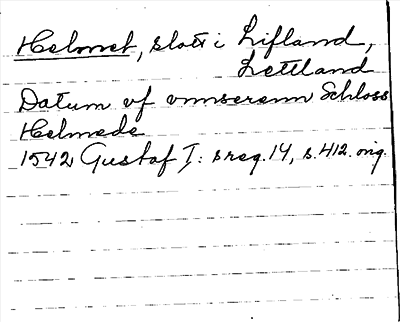 Helmet, slott i Lifland,
Lettland
Datum vf vnnserenn Schloss
Helmede
1542 Gustaf I: s reg. 14, s. 412. orig.